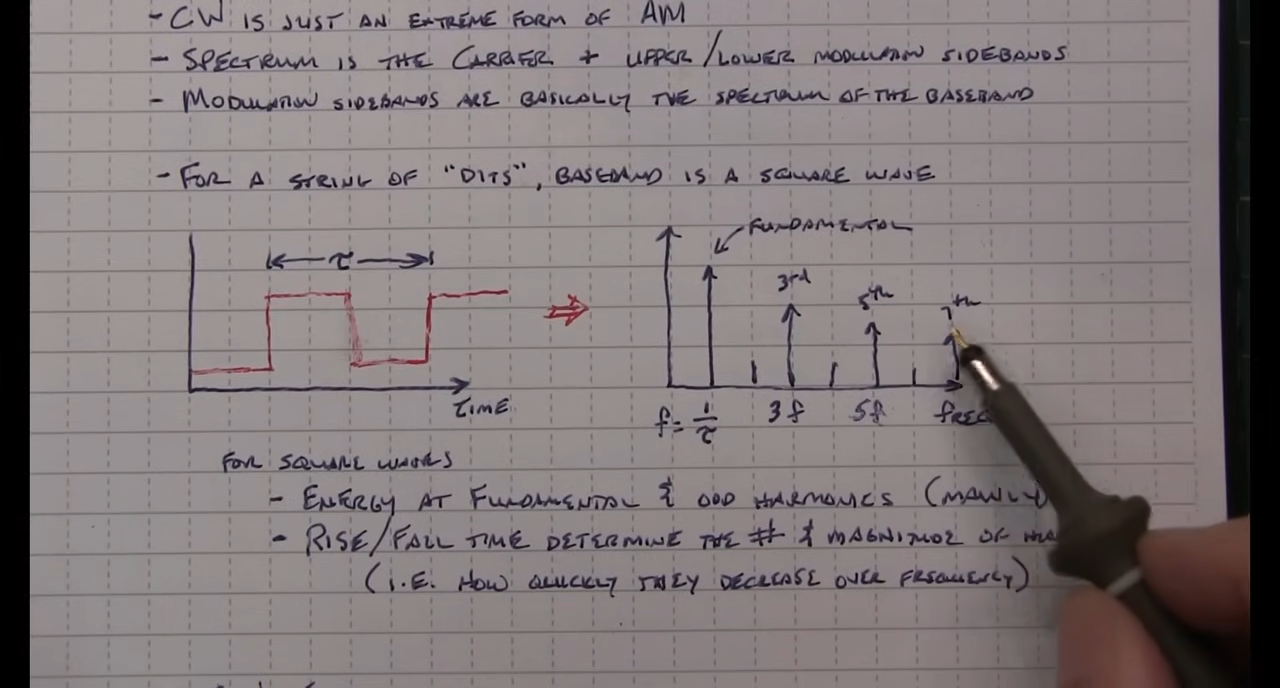 - CW IS JUST AN EXTREME FORM OF AM
- SPECTRUM IS THE CARRIER + UPPER/LOWER MODULATION SIDEBANDS
- MODULATION SIDEBANDS ARE BASICALLY THE SPECTRUM OF THE BASEBAND
- FOR A STRING OF "DITS", BASEBAND IS A SQUARE WAVE
FUNDAMENTAL
τ
3rd
5th
7th
TIME
f = 1/τ
3f
5f
FREQ
FOR SQUARE WAVES
- ENERGY AT FUNDAMENTAL & ODD HARMONICS (MAINLY
- RISE/FALL TIME DETERMINE THE # & MAGNITUDE OF
(I.E. HOW QUICKLY THEY DECREASE OVER FREQUENCY)